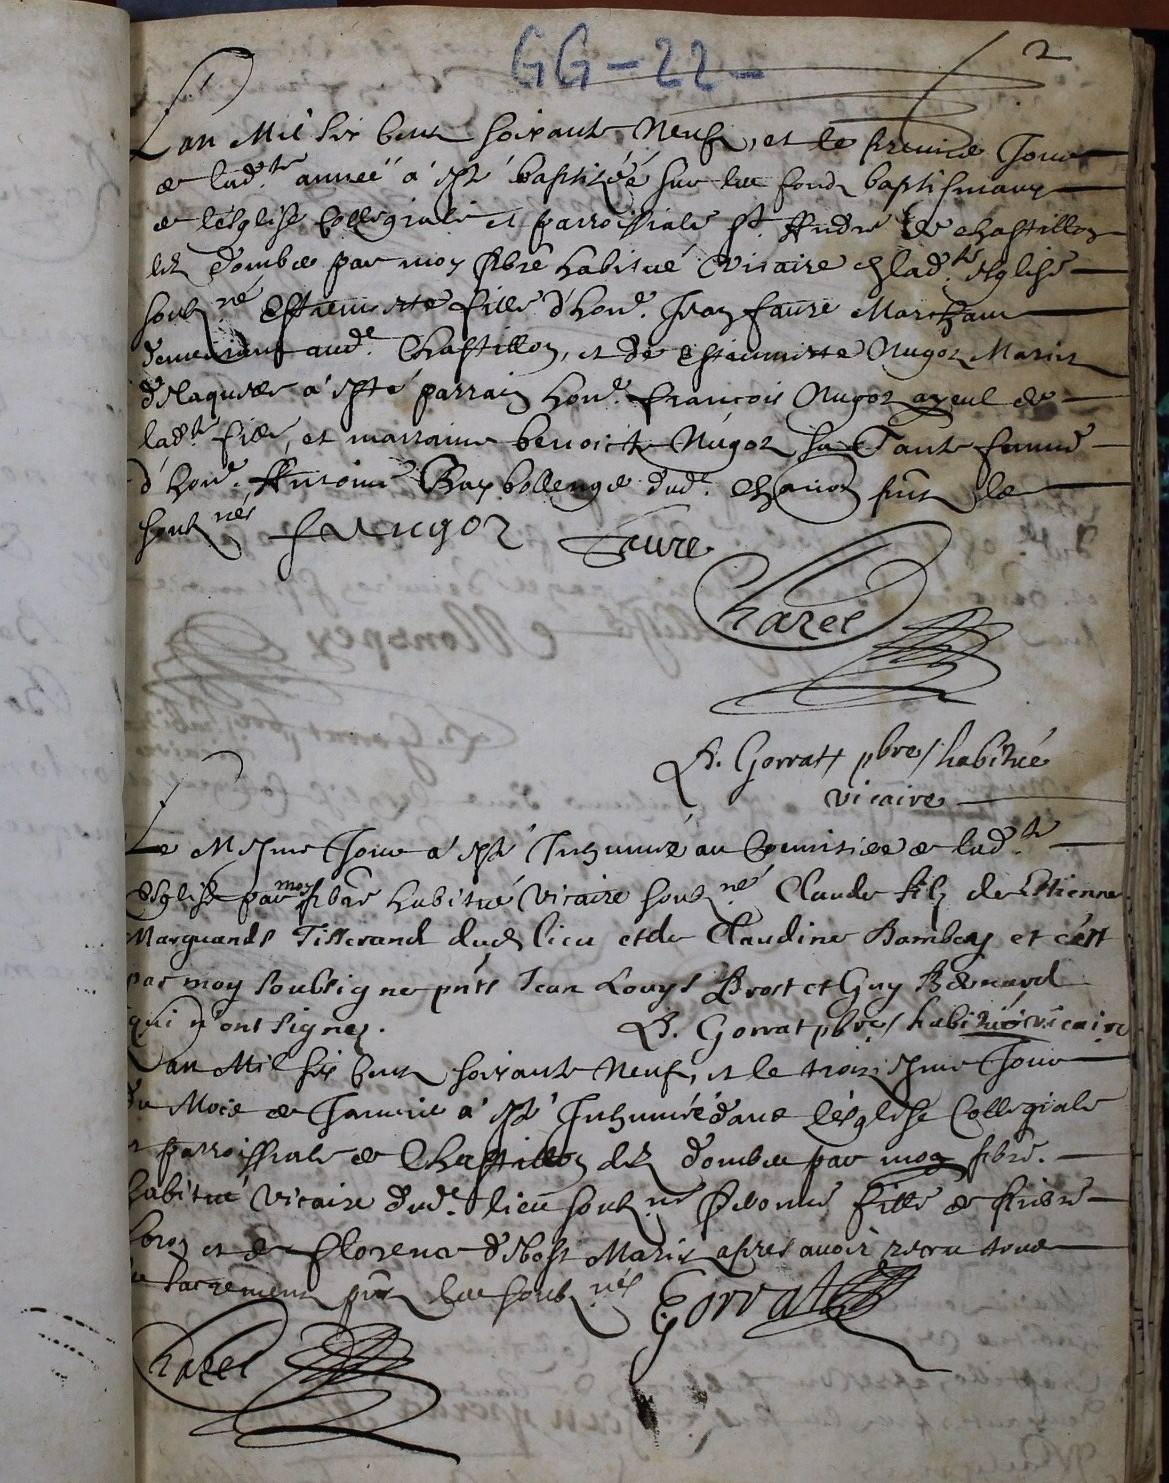 GG-22-
2
Lan Mil six cens soixante Neuf, et le premier Jour
de lad.te année a esté baptizée sur les fonds baptismaux
de leglise Collegiale et parroissiale St. André de chastillon
lez dombes par moy pbre habitué vicaire en lad.te eglise
soubz.né Estiennette fille d'hon.e Jean faure Marchant
demeurant aud.t Chastillon, et de Estiennette Nugoz Mariez
Deslaquels a esté parrain hon.e François Nugoz ayeul de
lad.te fille, et marraine benoiste Nugoz sa Tante femme
d'hon.e Anthoine dud.t pnts les
soubz.nés f nugoz faure
Chazel
Gorrat pbre habitué
vicaire
Le Mesme Jour a esté Inhumé au Cimitiere de lad.te
Eglise par moy pbre habitué vicaire soubz.né Claude filz de Estienne
Marguand Tisserand dud lieu et de Claudine Bambey et cest
par moy soubsigne pnts Jean Louys Brost et Guy Bernard
qui n'ont signez. Gorrat pbre habitué vicaire
Lan Mil six cens soixante Neuf, et le troiziesme Jour
du Mois de Janvier a esté Inhumée dans l'eglise Collegiale
et parroissiale de Chastillon lez dombes par moy pbre.
habitué vicaire dud.t lieu soubz.né fille de
et de Florence Mariez apres avoir receu tous
les sacremens pnts les soubz.nés Gorrat
Chazel